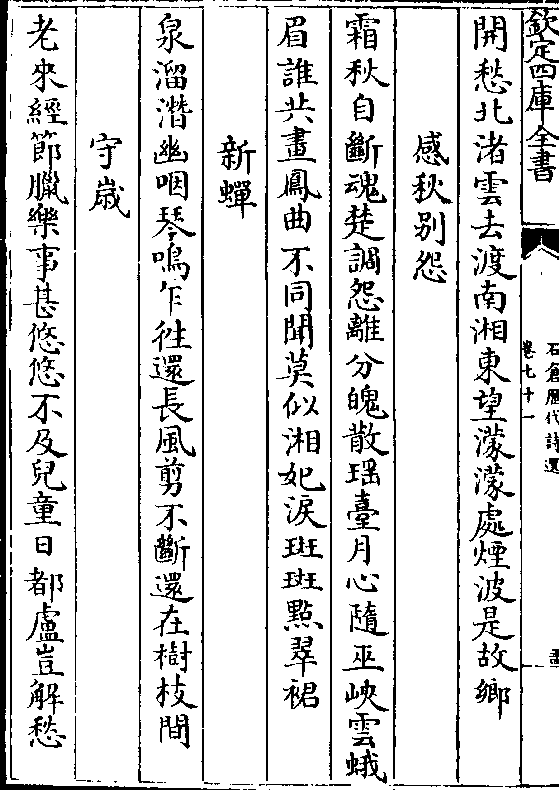 欽定四庫全書
石倉歷代詩選
卷七十一
開愁北渚雲去渡南湘東望濛濛處煙波是故鄉
感秋别怨
霜秋自斷魂楚調怨離分魄散瑶臺月心隨巫峽雲蛾
眉誰共畫鳳曲不同聞莫似湘妃淚斑斑點翠裙
新蟬
泉溜潛幽咽琴鳴乍往還長風剪不斷還在樹枝間
守歳
老來經節臘樂事甚悠悠不及兒童日都盧豈解愁